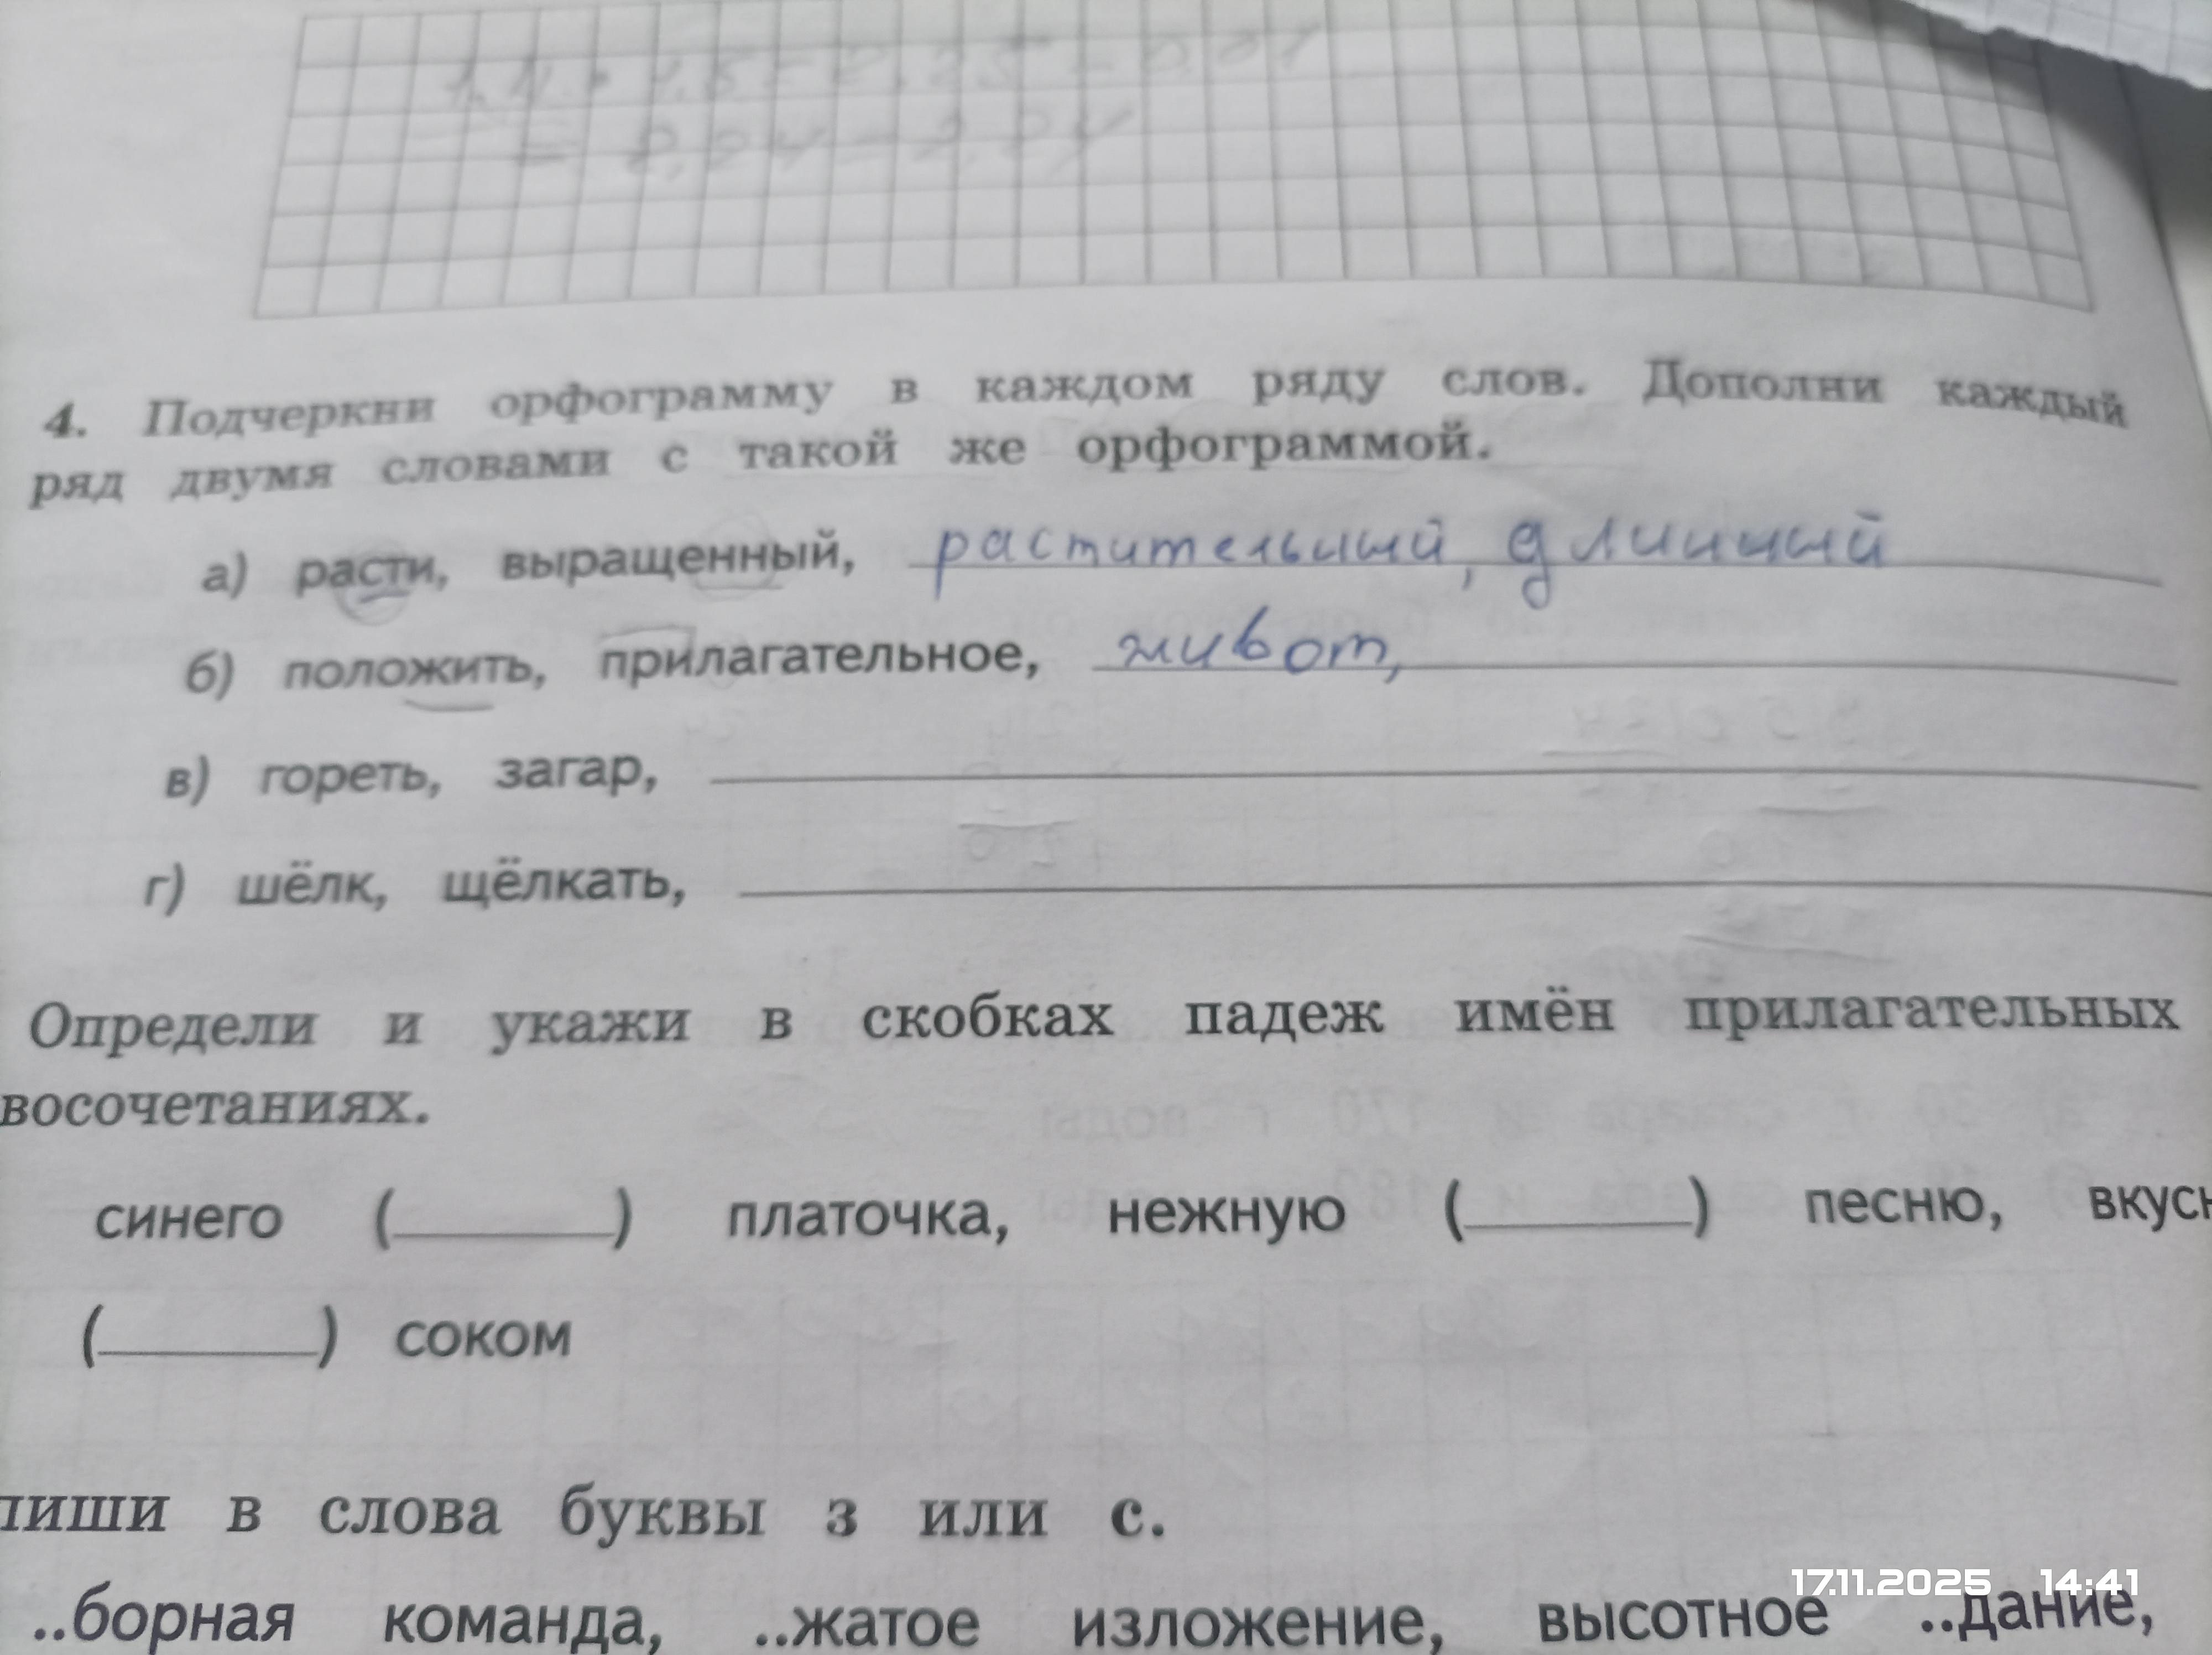 4. Подчеркни орфограмму в каждом ряду слов. Дополни каждый
ряд двумя словами с такой же орфограммой.
а) расти, выращенный, растительный, длинный
б) положить, прилагательное, живот,
в) гореть, загар,
г) шёлк, щёлкать,
Определи и укажи в скобках падеж имён прилагательных
восочетаниях.
синего (______) платочка, нежную (______) песню, вкусн
(______) соком
пиши в слова буквы з или с.
..борная команда, ..жатое изложение, высотное ..дание,
17.11.2025 14:41